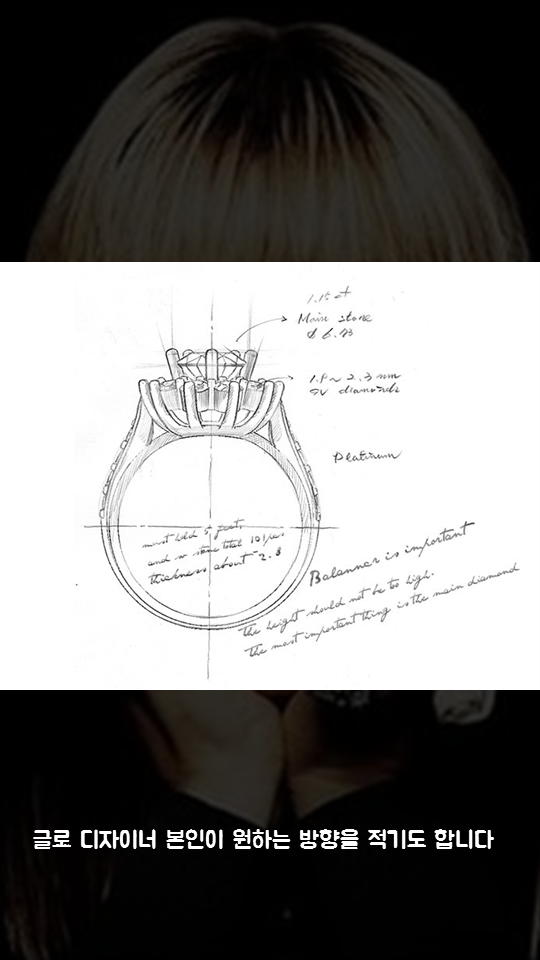 1.15 ct
Main stone
6.73
1.8 ~ 2.3 mm
diamonds
Platinum
must hold 5
and so stone total 10
thickness about 2.8
Balanner is important
the height should not be to high.
the most important thing is the main diamond
글로 디자이너 본인이 원하는 방향을 적기도 합니다